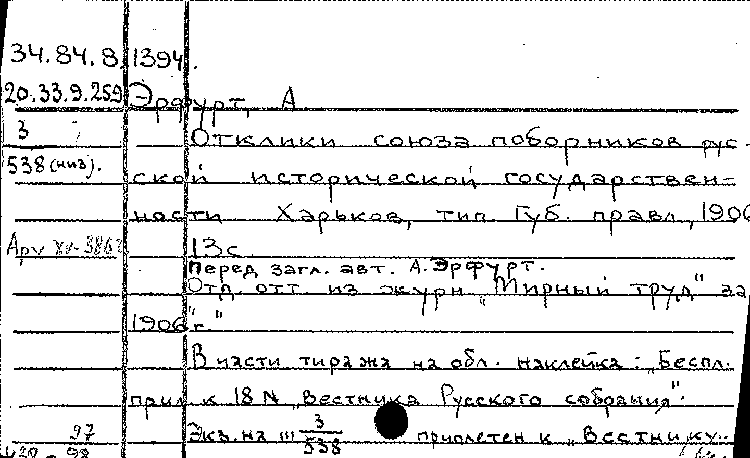 34.84.8.1394.
20.33.9.259 Эрфурт, А
3
Отклики союза поборников рус-
538 (низ).
ской исторической государствен-
ности Харьков, тип. Губ. правл., 1906
13с
Перед загл. авт. А.Эрфурт.
Отд. отт. из журн „Мирный труд" за
1906 г."
В части тиража на обл. наклейка: „Беспл.
прил к 18 № „Вестника Русского собрания".
Экз. на ш 3/538 приплетен к „Вестнику..
97
98